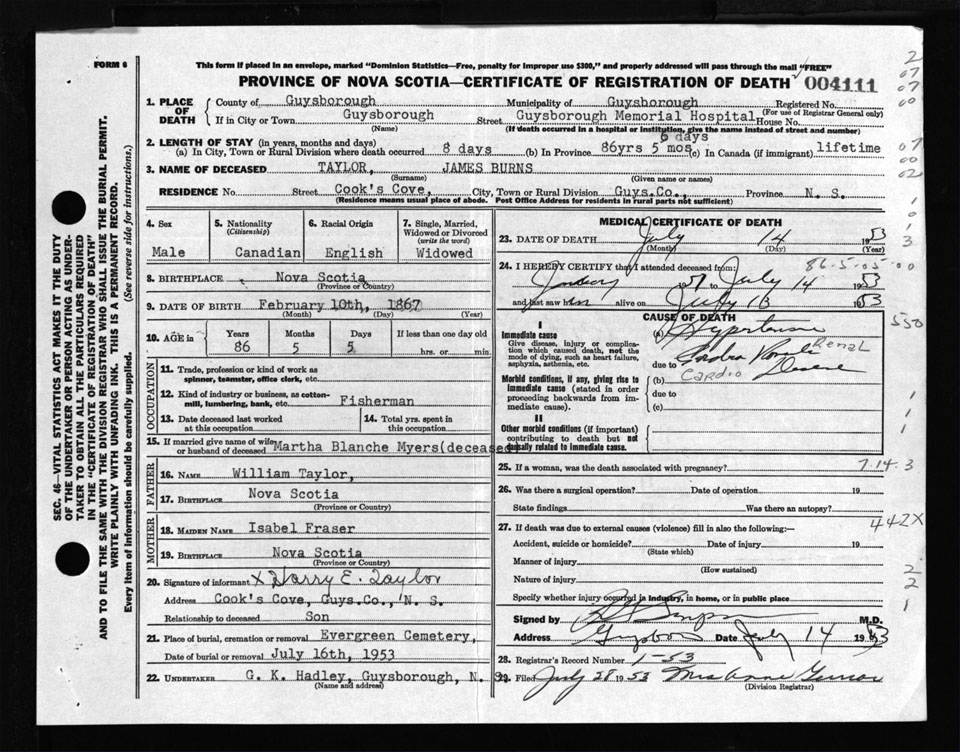 FORM 6
This form if placed in an envelope, marked "Dominion Statistics—Free, penalty for improper use $300," and properly addressed will pass through the mail "FREE"
PROVINCE OF NOVA SCOTIA—CERTIFICATE OF REGISTRATION OF DEATH 004111
1. PLACE OF DEATH
County of Guysborough Municipality of Guysborough Registered No.
(For use of Registrar General only)
If in City or Town Guysborough Street Guysborough Memorial Hospital House No.
(Name) (If death occurred in a hospital or institution, give the name instead of street and number)
2. LENGTH OF STAY (in years, months and days) 6 days
(a) In City, Town or Rural Division where death occurred 8 days (b) In Province 86yrs 5 mos (c) In Canada (if immigrant) lifetime
3. NAME OF DECEASED TAYLOR, JAMES BURNS
(Surname) (Given name or names)
RESIDENCE No. Street Cook's Cove, City, Town or Rural Division Guys.Co., Province N. S.
(Residence means usual place of abode. Post Office Address for residents in rural parts not sufficient)
SEC. 46—VITAL STATISTICS ACT MAKES IT THE DUTY
OF THE UNDERTAKER OR PERSON ACTING AS UNDER-
TAKER TO OBTAIN ALL THE PARTICULARS REQUIRED
IN THE "CERTIFICATE OF REGISTRATION OF DEATH"
AND TO FILE THE SAME WITH THE DIVISION REGISTRAR WHO SHALL ISSUE THE BURIAL PERMIT.
WRITE PLAINLY WITH UNFADING INK. THIS IS A PERMANENT RECORD.
Every item of Information should be carefully supplied. (See reverse side for instructions.)
4. Sex
Male
5. Nationality
(Citizenship)
Canadian
6. Racial Origin
English
7. Single, Married,
Widowed or Divorced
(write the word)
Widowed
8. BIRTHPLACE Nova Scotia
(Province or Country)
9. DATE OF BIRTH February 10th, 1867
(Month) (Day) (Year)
10. AGE in
Years Months Days If less than one day old
86 5 5 hrs. or min.
OCCUPATION
11. Trade, profession or kind of work as
spinner, teamster, office clerk, etc.
12. Kind of industry or business, as cotton-
mill, lumbering, bank, etc. Fisherman
13. Date deceased last worked
at this occupation
14. Total yrs. spent in
this occupation
15. If married give name of wife
or husband of deceased Martha Blanche Myers(deceased)
FATHER
16. NAME William Taylor,
17. BIRTHPLACE Nova Scotia
(Province or Country)
MOTHER
18. MAIDEN NAME Isabel Fraser
19. BIRTHPLACE Nova Scotia
(Province or Country)
20. Signature of informant X Harry E. Taylor
Address Cook's Cove, Guys.Co., N. S.
Relationship to deceased Son
21. Place of burial, cremation or removal Evergreen Cemetery,
Date of burial or removal July 16th, 1953
22. UNDERTAKER G. K. Hadley, Guysborough, N. S.
(Name and address)
MEDICAL CERTIFICATE OF DEATH
23. DATE OF DEATH July 14 1953
(Month) (Day) (Year)
24. I HEREBY CERTIFY that I attended deceased from: 86-5-05-00
July 14 1953
and last saw him alive on July 13 1953
CAUSE OF DEATH
I
Immediate cause
Give disease, injury or complica-
tion which caused death, not the
mode of dying, such as heart failure,
asphyxia, asthenia, etc.
Morbid conditions, if any, giving rise to
immediate cause (stated in order
proceeding backwards from im-
mediate cause).
II
Other morbid conditions (if important)
contributing to death but not
causally related to immediate cause.
(a) Hypertensive
due to Renal
(b) Cardio Disease
due to
(c)
25. If a woman, was the death associated with pregnancy? 7-14-3
26. Was there a surgical operation? Date of operation 19
State findings Was there an autopsy?
27. If death was due to external causes (violence) fill in also the following:—
442X
Accident, suicide or homicide? Date of injury 19
(State which)
Manner of injury
(How sustained)
Nature of injury
Specify whether injury occurred in industry, in home, or in public place
Signed by M.D.
Address Date July 14 1953
28. Registrar's Record Number 1-53
29. Filed July 28 1953 Mrs Anne
(Division Registrar)
2
07
07
00
07
00
02
550
2
2
1